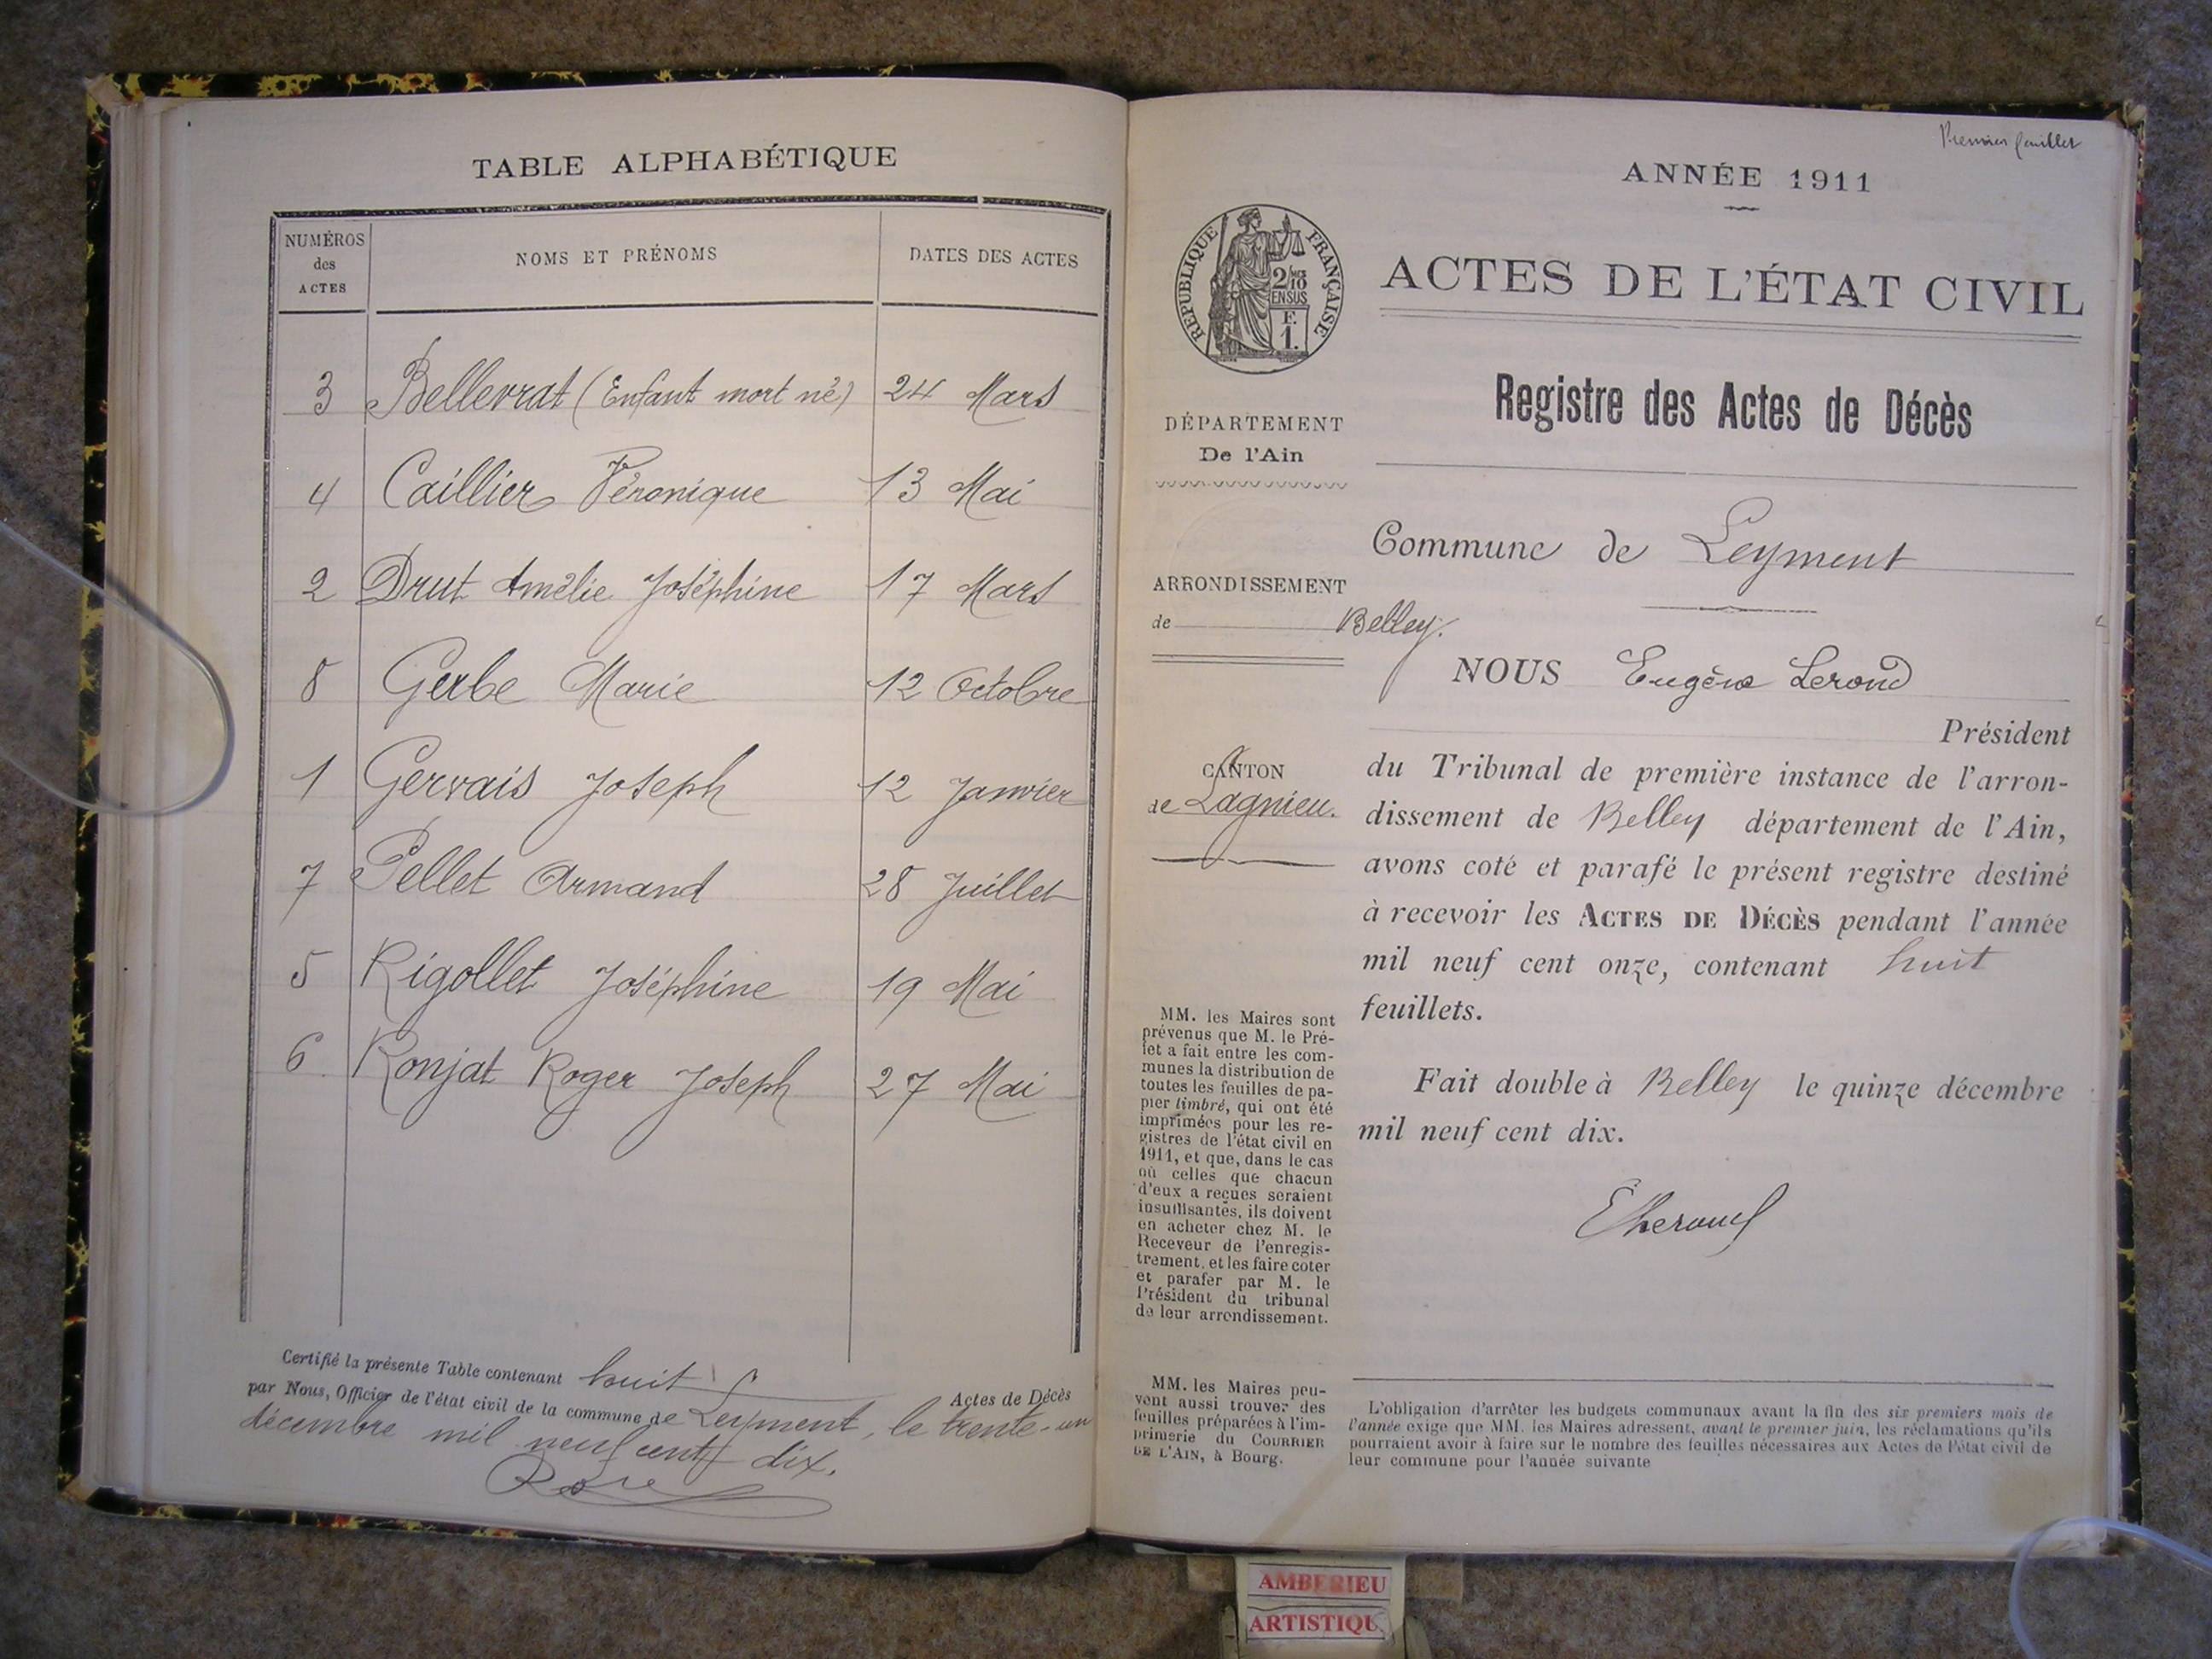 TABLE ALPHABÉTIQUE
NUMÉROS
des
ACTES
NOMS ET PRÉNOMS
DATES DES ACTES
3 Bellevrat (Enfant mort né) 24 Mars
4 Caillier Véronique 13 Mai
2 Drut Amélie Joséphine 17 Mars
8 Gerbe Marie 12 Octobre
1 Gervais Joseph 12 Janvier
7 Pellet Armand 28 Juillet
5 Rigollet Joséphine 19 Mai
6 Ronjat Roger Joseph 27 Mai
Certifié la présente Table contenant huit Actes de Décès
par Nous, Officier de l'état civil de la commune de Leyment, le trente-un
décembre mil neuf cent dix.
Premier feuillet
ANNÉE 1911
RÉPUBLIQUE FRANÇAISE
2/10
EN SUS
F.
1.
ACTES DE L'ÉTAT CIVIL
Registre des Actes de Décès
DÉPARTEMENT
De l'Ain
Commune de Leyment
ARRONDISSEMENT
de Belley.
NOUS Eugène Lerond
Président
CANTON
de Lagnieu.
du Tribunal de première instance de l'arron-
dissement de Belley département de l'Ain,
avons coté et parafé le présent registre destiné
à recevoir les ACTES DE DÉCÈS pendant l'année
mil neuf cent onze, contenant huit
feuillets.
Fait double à Belley le quinze décembre
mil neuf cent dix.
MM. les Maires sont
prévenus que M. le Pré-
fet a fait entre les com-
munes la distribution de
toutes les feuilles de pa-
pier timbré, qui ont été
imprimées pour les re-
gistres de l'état civil en
1911, et que, dans le cas
où celles que chacun
d'eux a reçues seraient
insuffisantes, ils doivent
en acheter chez M. le
Receveur de l'enregis-
trement, et les faire coter
et parafer par M. le
Président du tribunal
de leur arrondissement.
MM. les Maires peu-
vent aussi trouver des
feuilles préparées à l'im-
primerie du COURRIER
DE L'AIN, à Bourg.
L'obligation d'arrêter les budgets communaux avant la fin des six premiers mois de
l'année exige que MM. les Maires adressent, avant le premier juin, les réclamations qu'ils
pourraient avoir à faire sur le nombre des feuilles nécessaires aux Actes de l'état civil de
leur commune pour l'année suivante
AMBERIEU
ARTISTIQU